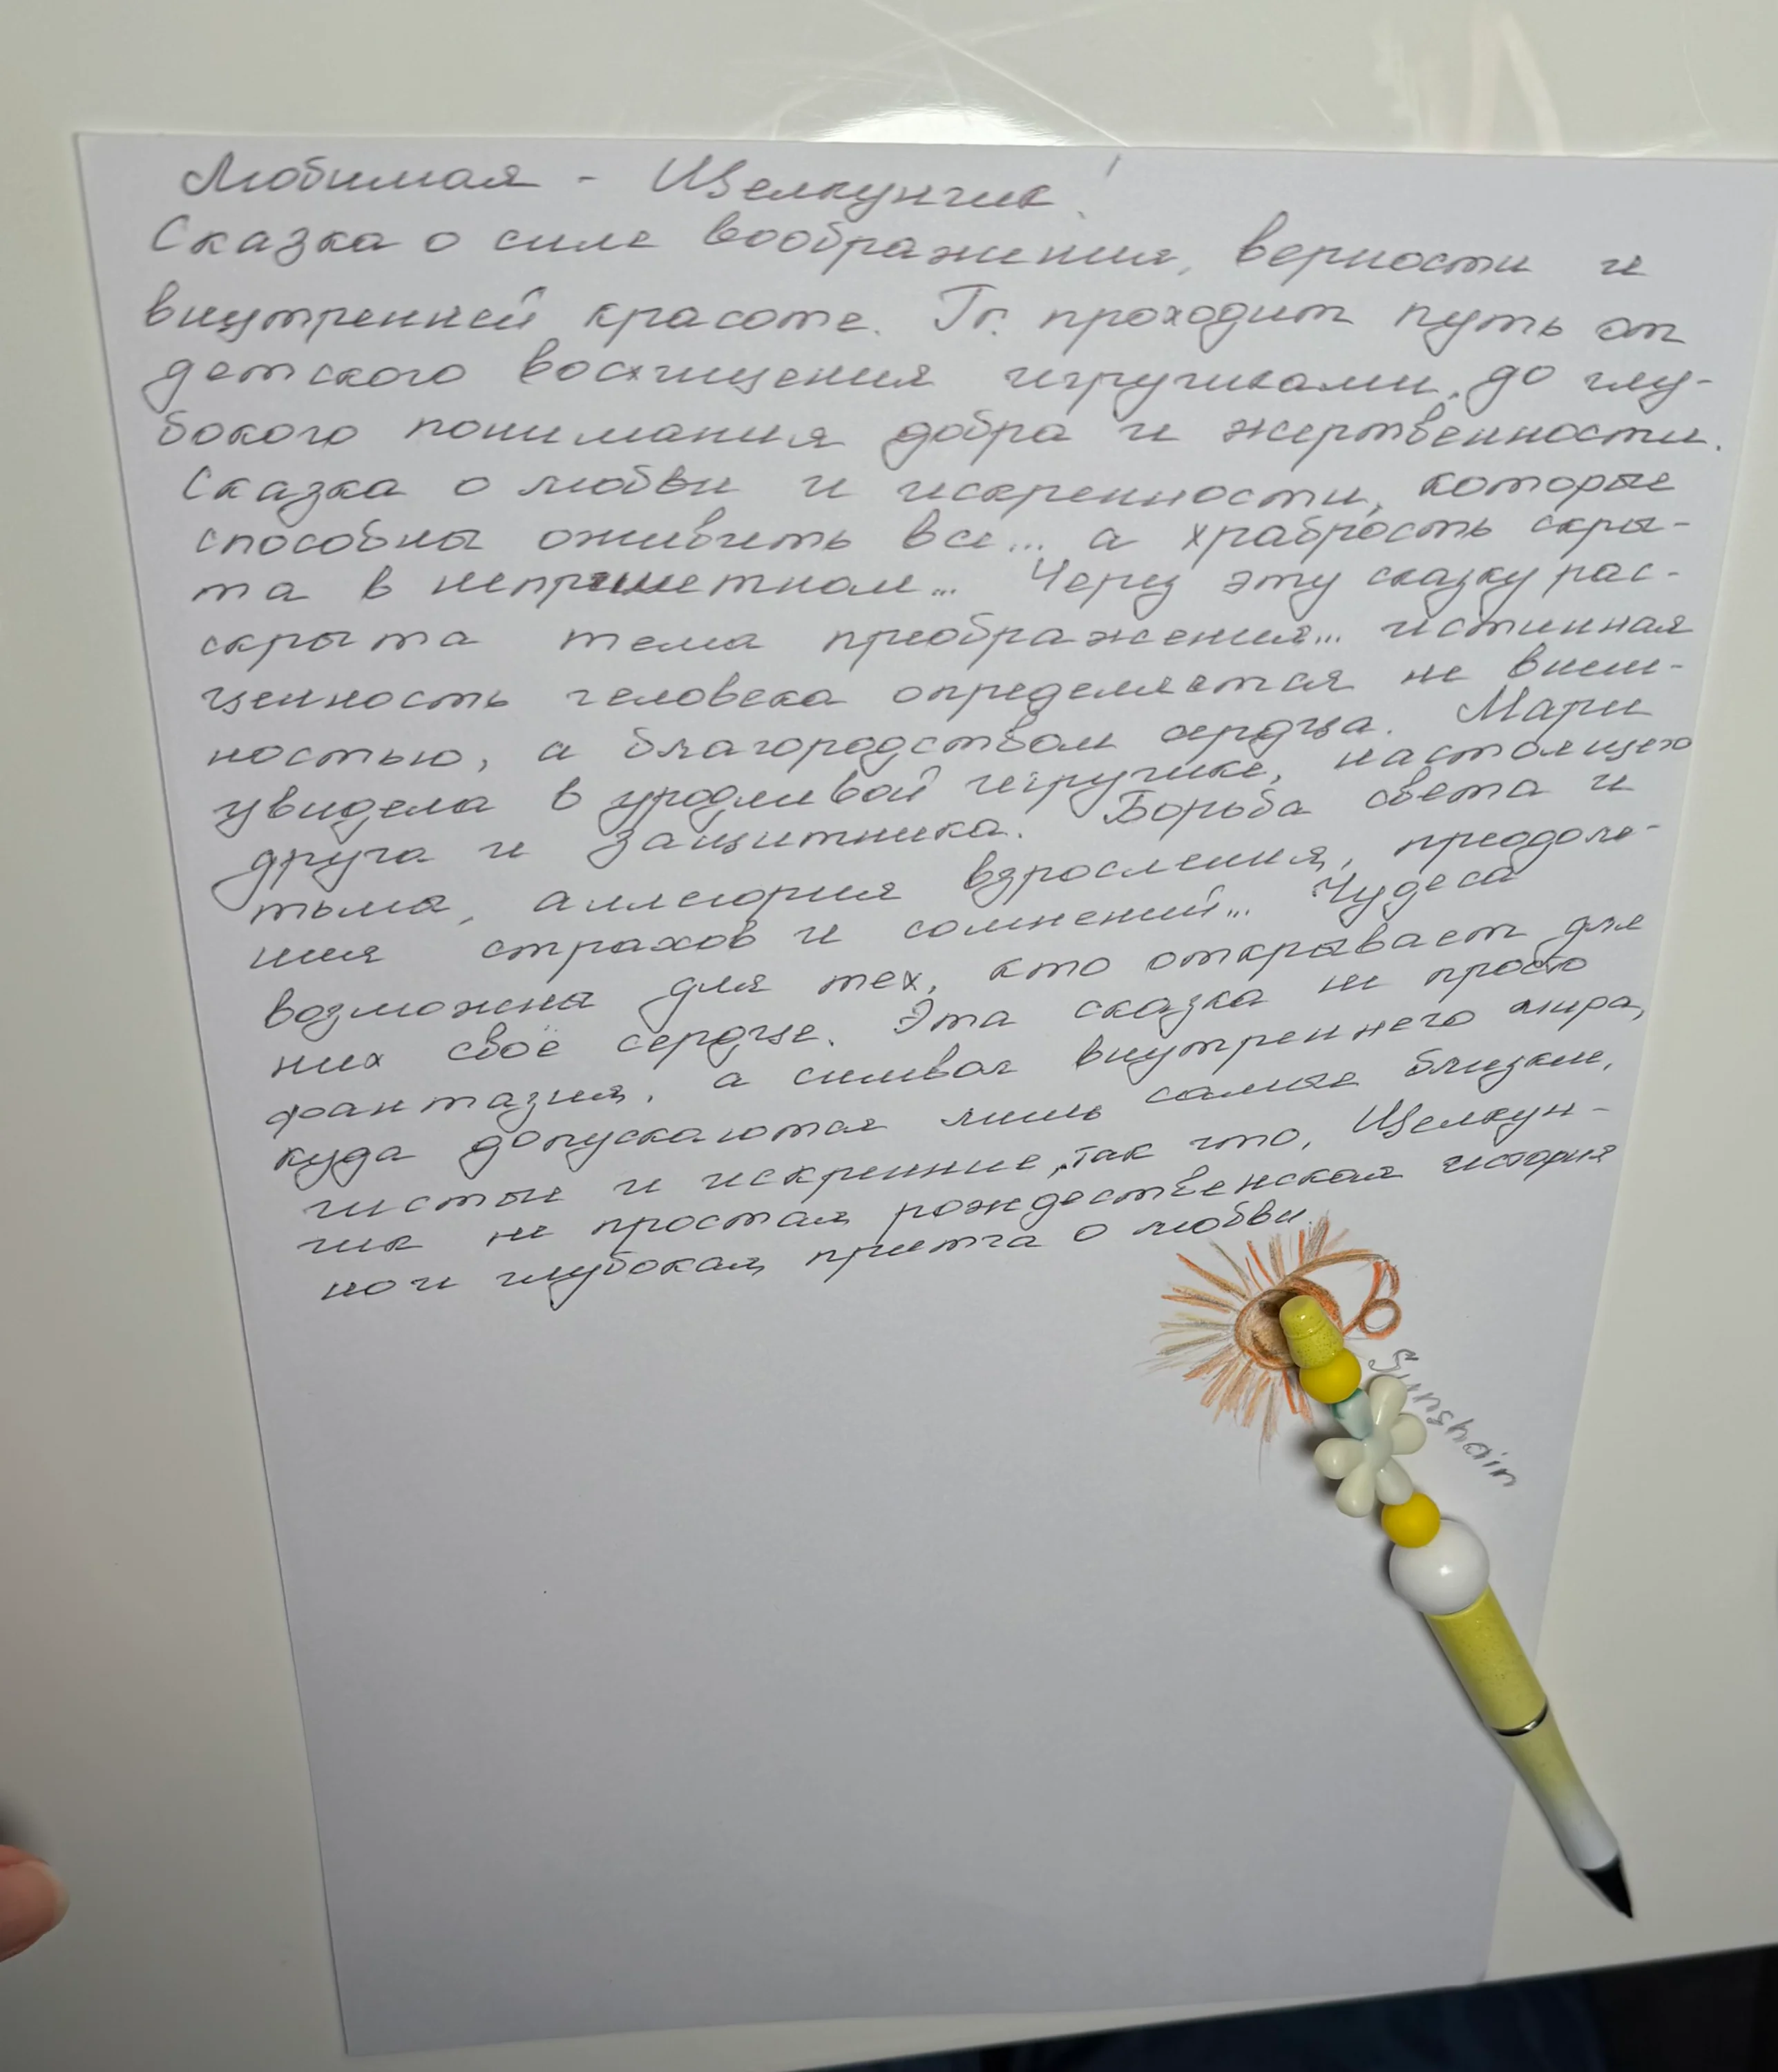 Любимая - Щелкунчик!
Сказка о силе воображения, верности и
внутренней красоте. Гг. проходит путь от
детского восхищения игрушками, до глу-
бокого понимания добра и жертвенности.
Сказка о любви и искренности, которые
способны оживить все... а храбрость скры-
та в неприметном... Через эту сказку рас-
скрыта тема преображения... истинная
ценность человека определяется не внеш-
ностью, а благородством сердца. Мари
увидела в уродливой игрушке, настоящего
друга и защитника. Борьба света и
тьмы, аллегория взросления, преодоле-
ния страхов и сомнений... Чудеса
возможны для тех, кто открывает для
них своё сердце. Эта сказка не просто
фантазия, а символ внутреннего мира,
куда допускаются лишь самые близкие,
чистые и искренние, так что, Щелкун-
чик не простая рождественская история
но и глубокая притча о любви.
Sunshain